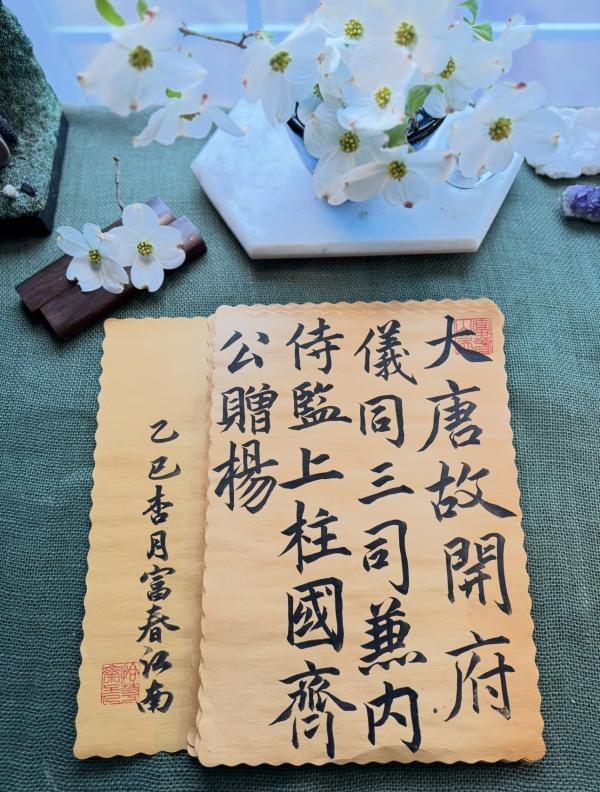 大唐故開府
儀同三司兼内
侍監上柱國齊
公贈楊
乙巳杏月富春江南